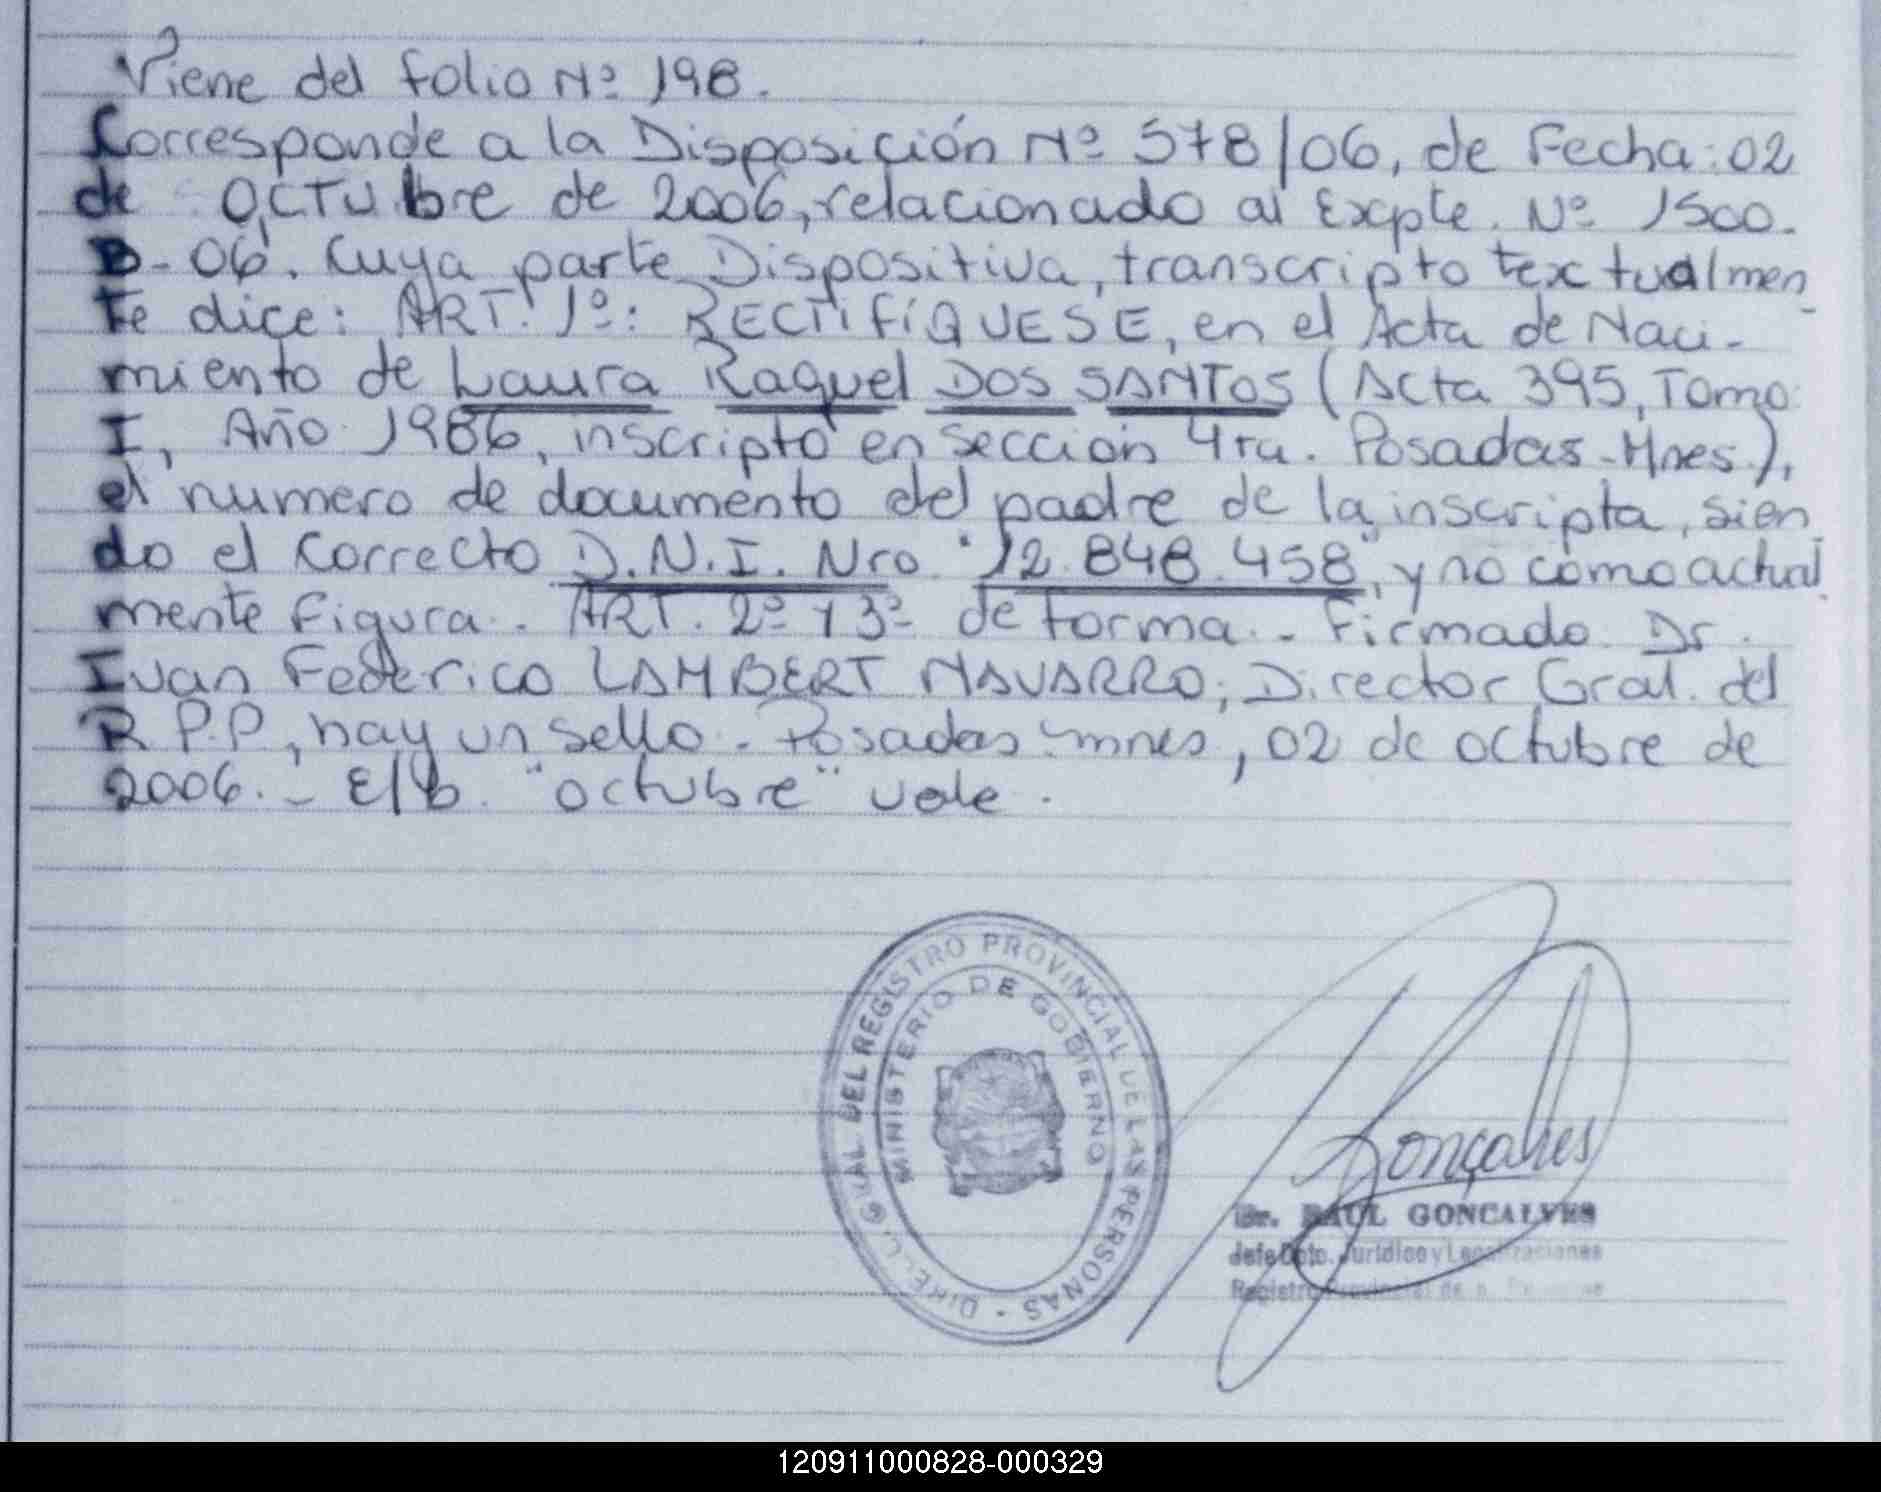 Viene del folio Nº 198.
Corresponde a la Disposición Nº 578/06, de Fecha: 02
de OCTUbre de 2006, relacionado al Excpte. Nº 1500-
B-06. Cuya parte Dispositiva, transcripto textualmen
te dice: ART. 1º: RECTIFÍQUESE, en el Acta de Naci-
miento de Laura Raquel DOS SANTOS (Acta 395, Tomo:
I, Año 1986, inscripto en sección 4ta. Posadas-Mnes.),
el numero de documento del padre de la inscripta, sien
do el correcto D.N.I. Nro. "12.848.458", y no como actual
mente figura.- ART. 2º y 3º de forma.- Firmado Dr.
Ivan Federico LAMBERT NAVARRO; Director Gral. del
R.P.P., hay un sello.- Posadas-mnes, 02 de octubre de
2006.- E/b. "octubre" vale.
DEL REGISTRO PROVINCIAL DE LAS PERSONAS
MINISTERIO DE GOBIERNO
Gonçalves
Dr. RAUL GONCALVES
Jefe Dpto. Jurídico y Legalizaciones
Registro Provincial de
120911000828-000329